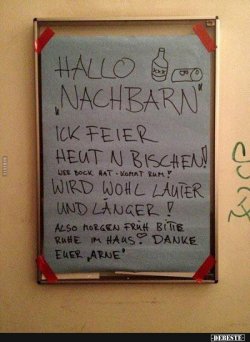 HALLO
"NACHBARN"
ICK FEIER
HEUT N BISCHEN!
WER BOCK HAT - KOMMT RUM!
WIRD WOHL LAUTER
UND LÄNGER!
ALSO MORGEN FRÜH BITTE
RUHE IM HAUS! DANKE
EUER "ARNE"
DEBESTE